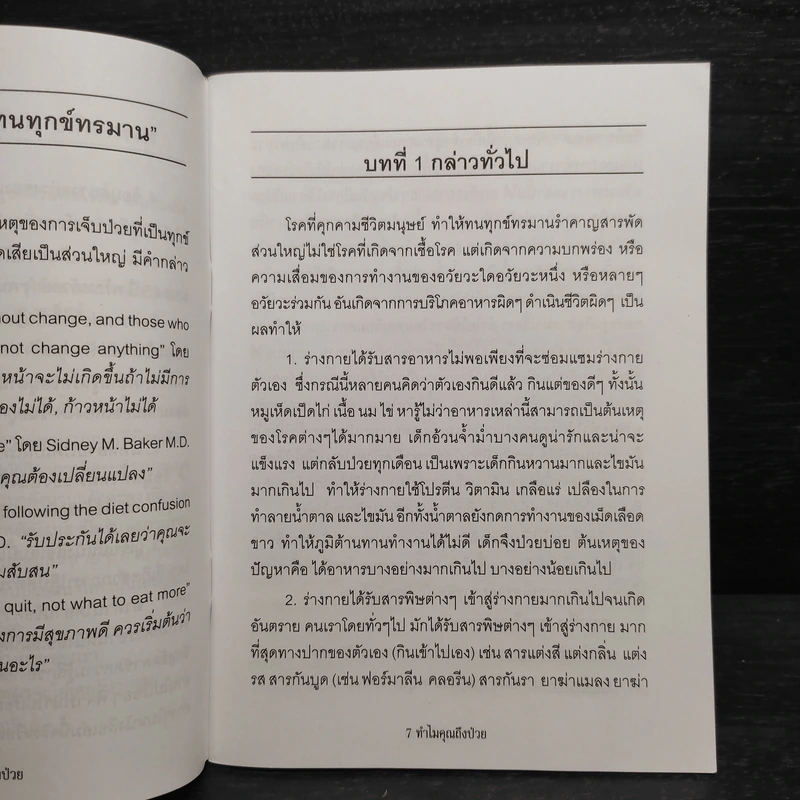 ทนทุกข์ทรมาน"
หตุของการเจ็บป่วยที่เป็นทุกข์
ดเสียเป็นส่วนใหญ่ มีคำกล่าว
out change, and those who
not change anything" โดย
หน้าจะไม่เกิดขึ้นถ้าไม่มีการ
องไม่ได้, ก้าวหน้าไม่ได้
e" โดย Sidney M. Baker M.D.
คุณต้องเปลี่ยนแปลง"
following the diet confusion
D. "รับประกันได้เลยว่าคุณจะ
มสับสน"
quit, not what to eat more"
งการมีสุขภาพดี ควรเริ่มต้นว่า
นอะไร"
งป่วย
บทที่ 1 กล่าวทั่วไป
โรคที่คุกคามชีวิตมนุษย์ ทำให้ทนทุกข์ทรมานรำคาญสารพัด
ส่วนใหญ่ไม่ใช่โรคที่เกิดจากเชื้อโรค แต่เกิดจากความบกพร่อง หรือ
ความเสื่อมของการทำงานของอวัยวะใดอวัยวะหนึ่ง หรือหลายๆ
อวัยวะร่วมกัน อันเกิดจากการบริโภคอาหารผิดๆ ดำเนินชีวิตผิดๆ เป็น
ผลทำให้
1. ร่างกายได้รับสารอาหารไม่พอเพียงที่จะซ่อมแซมร่างกาย
ตัวเอง ซึ่งกรณีนี้หลายคนคิดว่าตัวเองกินดีแล้ว กินแต่ของดีๆ ทั้งนั้น
หมูเห็ดเป็ดไก่ เนื้อ นม ไข่ หารู้ไม่ว่าอาหารเหล่านี้สามารถเป็นต้นเหตุ
ของโรคต่างๆได้มากมาย เด็กอ้วนจ้ำม่ำบางคนดูน่ารักและน่าจะ
แข็งแรง แต่กลับป่วยทุกเดือน เป็นเพราะเด็กกินหวานมากและไขมัน
มากเกินไป ทำให้ร่างกายใช้โปรตีน วิตามิน เกลือแร่ เปลืองในการ
ทำลายน้ำตาล และไขมัน อีกทั้งน้ำตาลยังกดการทำงานของเม็ดเลือด
ขาว ทำให้ภูมิต้านทานทำงานได้ไม่ดี เด็กจึงป่วยบ่อย ต้นเหตุของ
ปัญหาคือ ได้อาหารบางอย่างมากเกินไป บางอย่างน้อยเกินไป
2. ร่างกายได้รับสารพิษต่างๆ เข้าสู่ร่างกายมากเกินไปจนเกิด
อันตราย คนเราโดยทั่วๆไป มักได้รับสารพิษต่างๆ เข้าสู่ร่างกาย มาก
ที่สุดทางปากของตัวเอง (กินเข้าไปเอง) เช่น สารแต่งสี แต่งกลิ่น แต่ง
รส สารกันบูด (เช่น ฟอร์มาลีน คลอรีน) สารกันรา ยาฆ่าแมลง ยาฆ่า
7 ทำไมคุณถึงป่วย